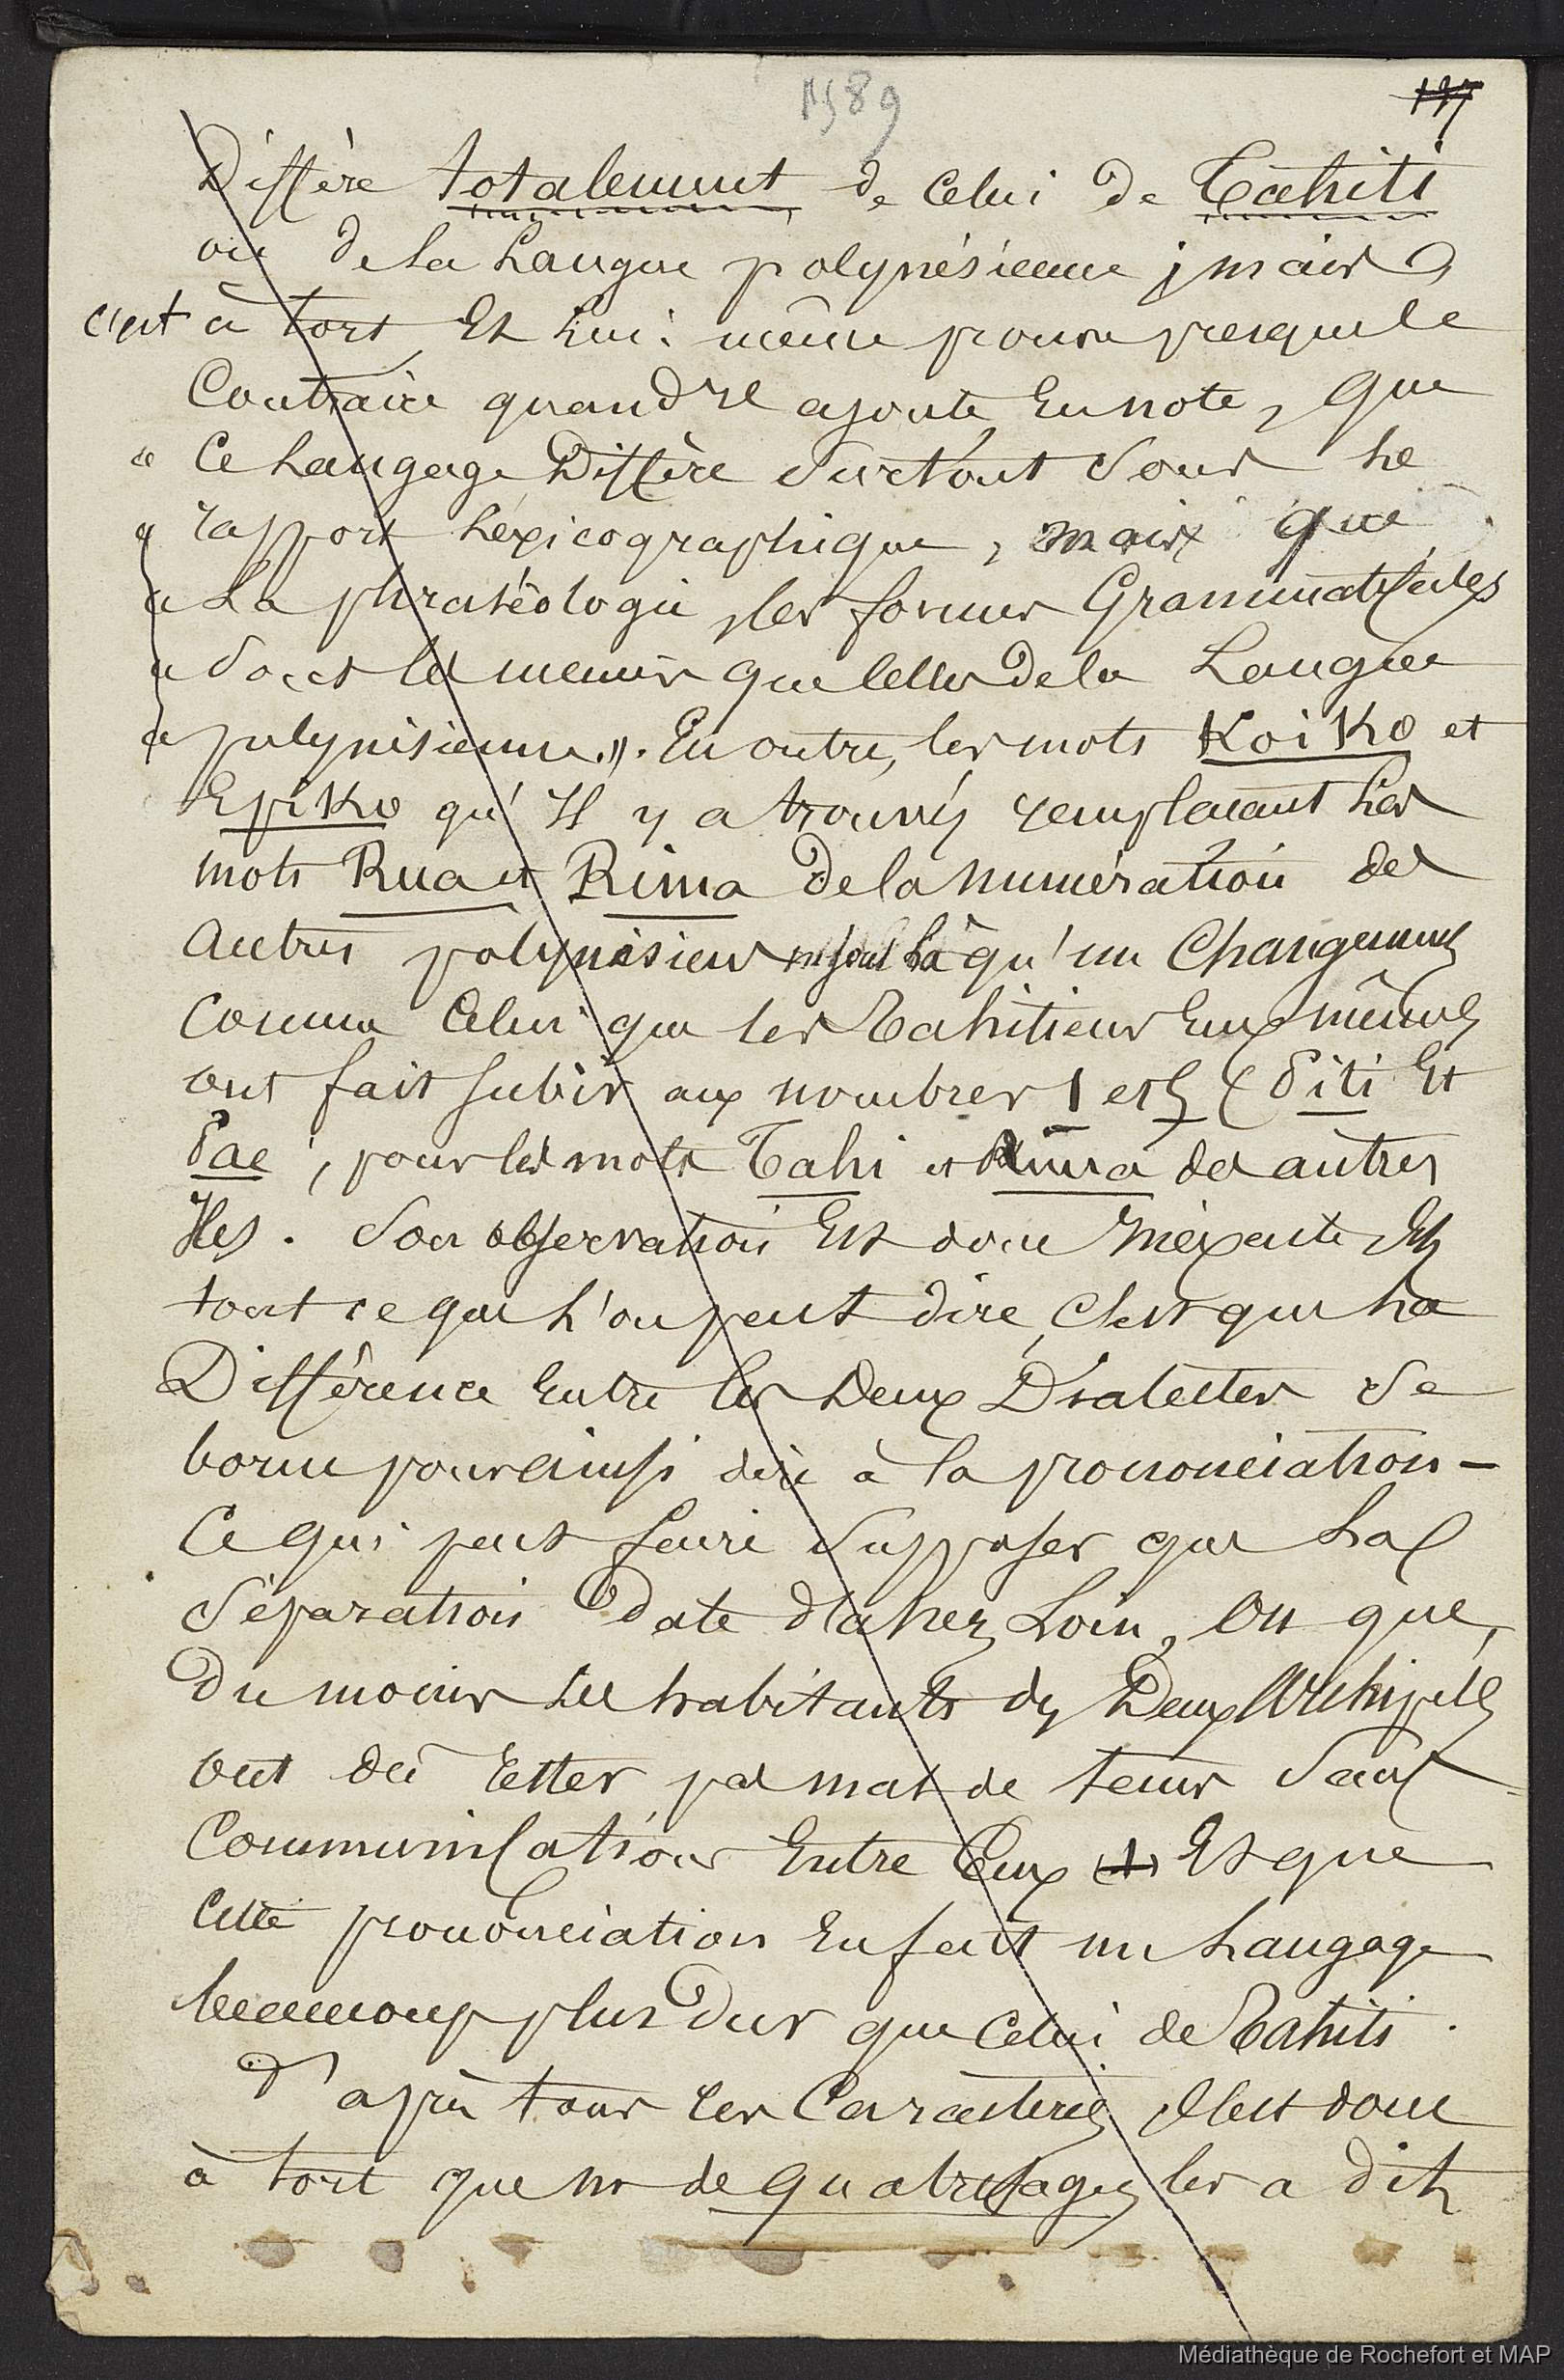 1589
137
Diffère totalement de celui de Tahiti
ou de la Langue polynésienne ; mais
c'est à tort, Et Lui-même prouve presque le
Contraire quand Il ajoute, En note, que
" Ce Langage Diffère surtout sous Le
" rapport Léxicographique, mais que
" La phraséologie, les formes Grammaticales
" sont les memes que celles de la Langue
" polynésienne ». En outre, les mots Koiko et
Epiko qu'Il y a trouvés remplacant Les
mots Rua et Rima de la numération des
autres polynésiens ne sont Là qu'un Changement
Comme Celui que les Tahitiens Eux mêmes
ont fait subir aux nombres 1 et 5 (Piti Et
Pae), pour les mots Tahi et Rima des autres
Iles. Son observation Est donc Inéxacte Et
tout ce que L'on peut dire, C'est que La
Différence Entre les Deux Dialectes se
borne pour ainsi dire à la prononciation -
Ce qui peut faire supposer que La
Séparation Date d'assez Loin, Ou que,
Du moins Les habitants des Deux Archipels
ont dû rester pas mal de tems sans
Communications Entre Eux Et que
Cette prononciation En fait un Langage
beaucoup plus Dur que Celui de Tahiti.
D'après tous ces Caractères, Il est donc
à tort que Mr de Quatrefages les a dit
Médiathèque de Rochefort et MAP